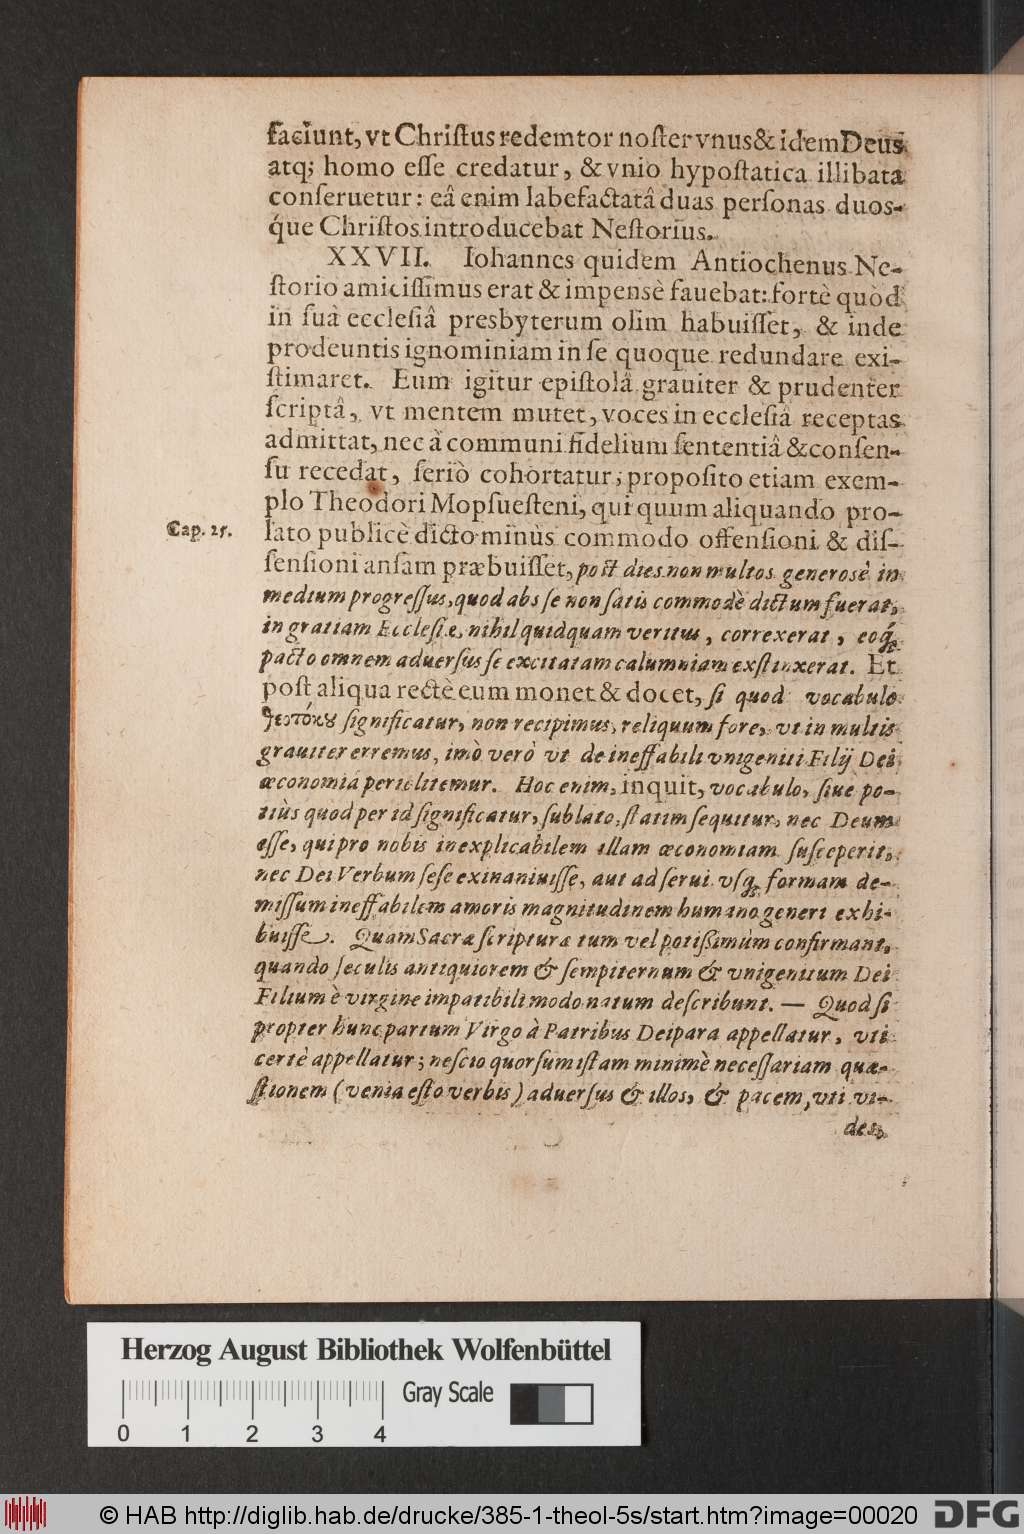 faciunt, vt Chriſtus redemtor noſter vnus & idem Deus
atq; homo eſſe credatur, & vnio hypoſtatica illibata
conſeruetur: eâ enim labefactatâ duas perſonas duos-
q́ue Chriſtos introducebat Neſtorius.
XXVII. Iohannes quidem Antiochenus Ne-
ſtorio amiciſſimus erat & impensè fauebat: fortè quòd
in ſuâ eccleſiâ presbyterum olim habuiſſet, & inde
prodeuntis ignominiam in ſe quoque redundare exi-
ſtimaret. Eum igitur epiſtolâ grauiter & prudenter
ſcriptâ, vt mentem mutet, voces in eccleſiâ receptas
admittat, nec à communi fidelium ſententiâ & conſen-
ſu recedat, ſeriò cohortatur; propoſito etiam exem-
plo Theodori Mopſueſteni, qui quum aliquando pro-
Cap. 25.
lato publicè dicto minùs commodo offenſioni & diſ-
ſenſioni anſam præbuiſſet, poſt dies non multos generosè in
medium progreſſus, quod abs ſe non ſatis commodè dictum fuerat,
in gratiam Eccleſiæ, nihil quidquam veritus, correxerat, eoq́;
pacto omnem aduerſus ſe excitatam calumniam exſtinxerat. Et
poſt aliqua rectè eum monet & docet, ſi quod vocabulo
θεοτόκȣ ſignificatur, non recipimus, reliquum fore, vt in multis
grauiter erremus, imò verò vt de ineffabili vnigeniti Filij Dei
œconomiá periclitemur. Hoc enim, inquit, vocabulo, ſiue po-
tiùs quod per id ſignificatur, ſublato, ſtatim ſequitur, nec Deum
eſſe, qui pro nobis inexplicabilem illam œconomiam ſuſceperit,
nec Dei Verbum ſeſe exinaniuiſſe, aut ad ſerui vſq; formam de-
miſſum ineffabilem amoris magnitudinem humano generi exhi-
buiſſe. Quam Sacræ ſcripturæ tum vel potißimùm confirmant,
quando ſeculis antiquiorem & ſempiternum & vnigenitum Dei
Filium è virgine impatibili modo natum deſcribunt. — Quod ſi
propter hunc partum Virgo à Patribus Deipara appellatur, vti
certè appellatur; neſcio quorſum iſtam minimè neceſſariam quæ-
ſtionem (venia eſto verbis) aduerſus & illos, & pacem, vti vi-
des,
Herzog August Bibliothek Wolfenbüttel
Gray Scale
0 1 2 3 4
© HAB http://diglib.hab.de/drucke/385-1-theol-5s/start.htm?image=00020
DFG